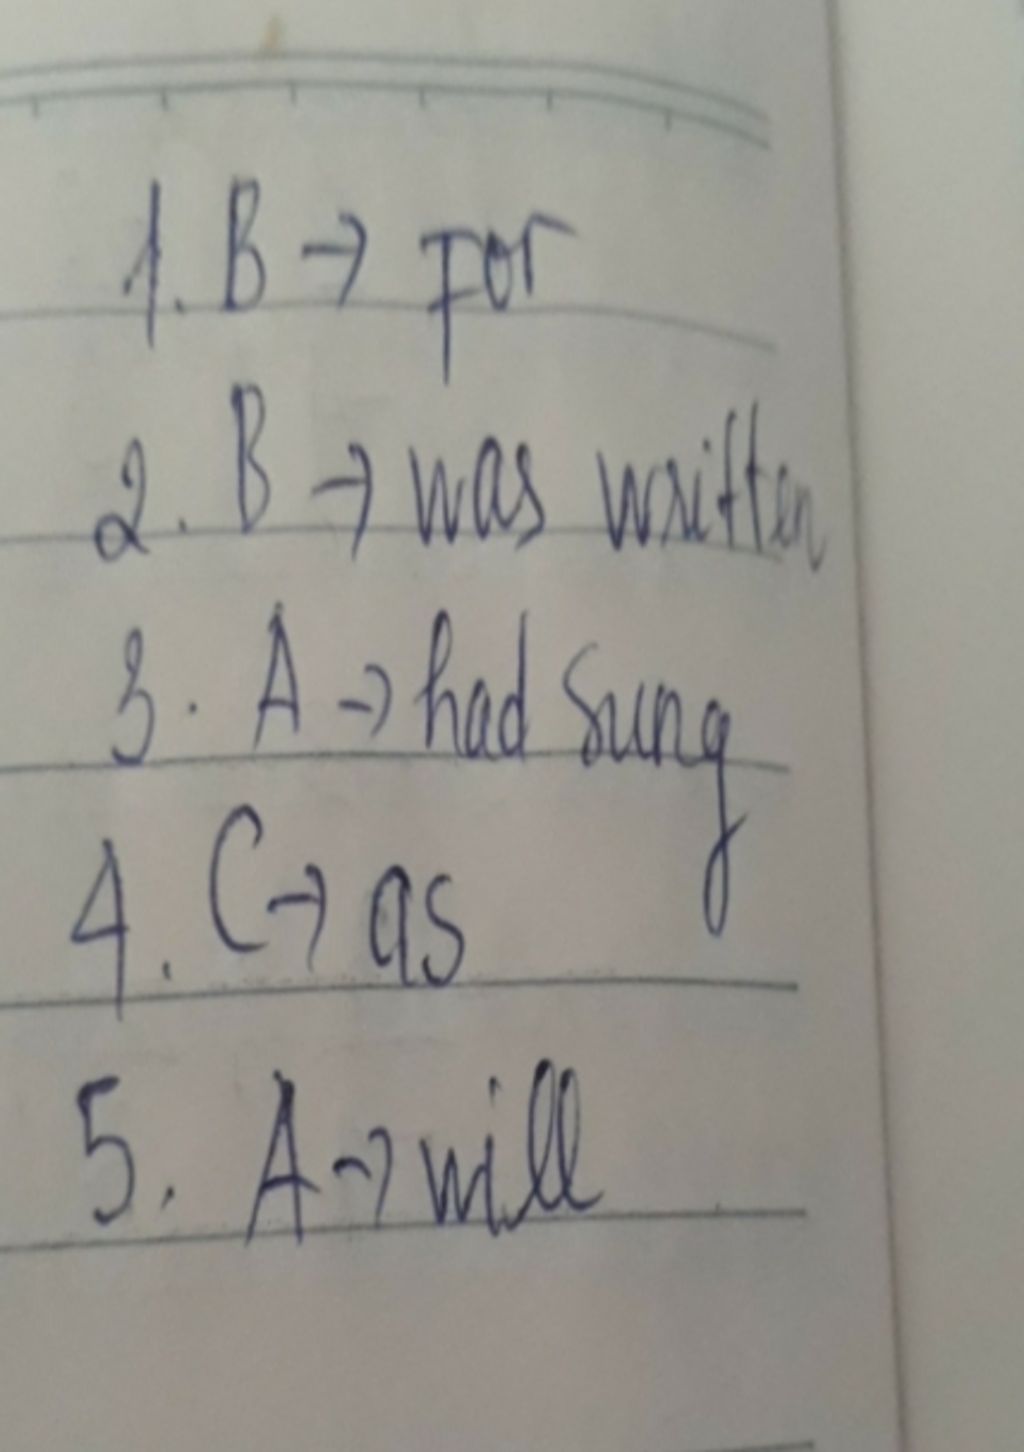 1. B → For
2. B → was written
3. A → had sung
4. C → as
5. A → will